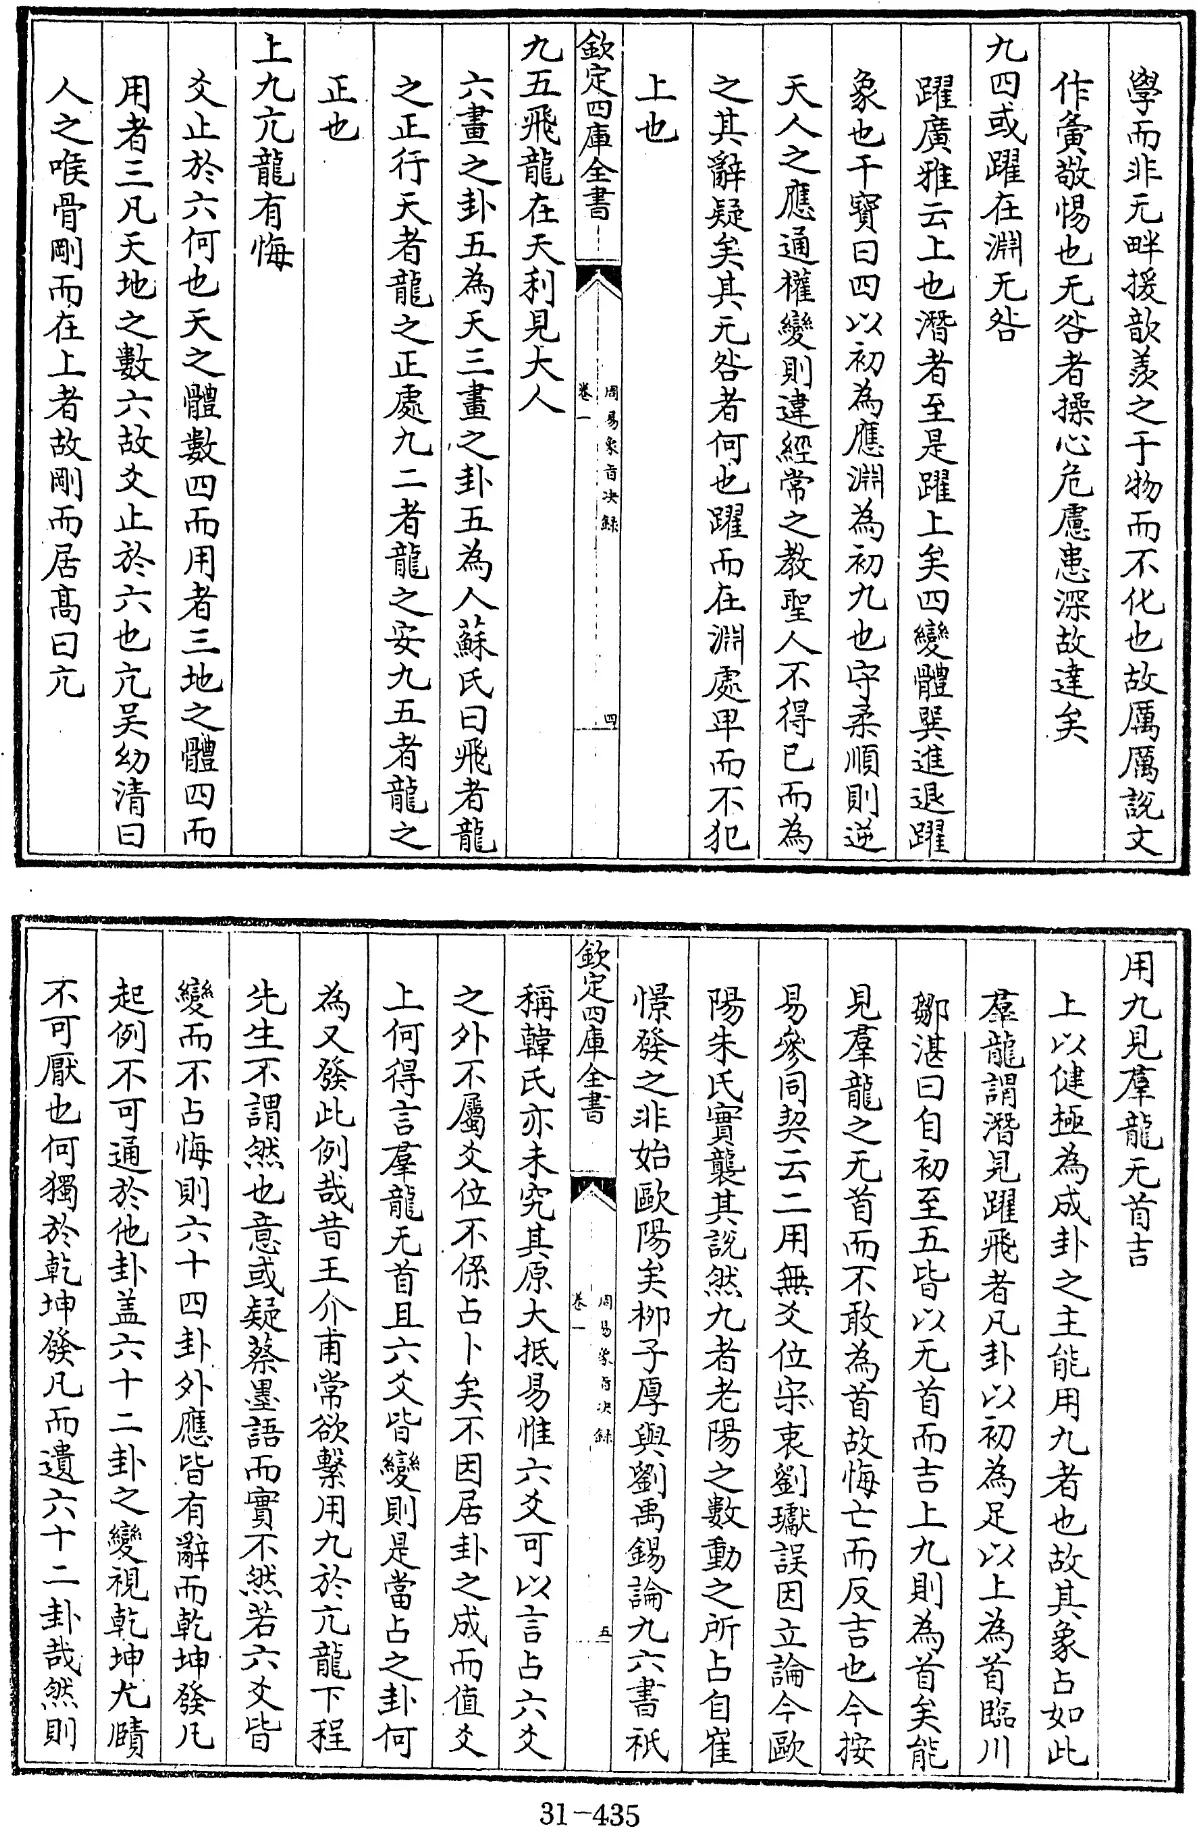 學而非无畔援歆羨之于物而不化也故厲厲說文
作夤敬惕也无咎者操心危慮患深故達矣
九四或躍在淵无咎
躍廣雅云上也潛者至是躍上矣四變體巽進退躍
象也干寶曰四以初為應淵為初九也守柔順則逆
天人之應通權變則違經常之教聖人不得已而為
之其辭疑矣其无咎者何也躍而在淵處卑而不犯
上也
欽定四庫全書
周易象旨决錄
卷一
四
九五飛龍在天利見大人
六畫之卦五為天三畫之卦五為人蘇氏曰飛者龍
之正行天者龍之正處九二者龍之安九五者龍之
正也
上九亢龍有悔
爻止於六何也天之體數四而用者三地之體四而
用者三凡天地之數六故爻止於六也亢吴幼清曰
人之喉骨剛而在上者故剛而居髙曰亢
用九見羣龍无首吉
上以健極為成卦之主能用九者也故其象占如此
羣龍謂潛見躍飛者凡卦以初為足以上為首臨川
鄒湛曰自初至五皆以无首而吉上九則為首矣能
見羣龍之无首而不敢為首故悔亡而反吉也今按
易參同契云二用無爻位宋衷劉瓛誤因立論今歐
陽朱氏實襲其說然九者老陽之數動之所占自崔
憬發之非始歐陽矣栁子厚與劉禹錫論九六書祇
欽定四庫全書
周易象旨决錄
卷一
五
稱韓氏亦未究其原大抵易惟六爻可以言占六爻
之外不屬爻位不係占卜矣不因居卦之成而值爻
上何得言羣龍无首且六爻皆變則是當占之卦何
為又發此例哉昔王介甫常欲繫用九於亢龍下程
先生不謂然也意或疑蔡墨語而實不然若六爻皆
變而不占悔則六十四卦外應皆有辭而乾坤發凡
起例不可通於他卦盖六十二卦之變視乾坤尤賾
不可厭也何獨於乾坤發凡而遺六十二卦哉然則
31-435